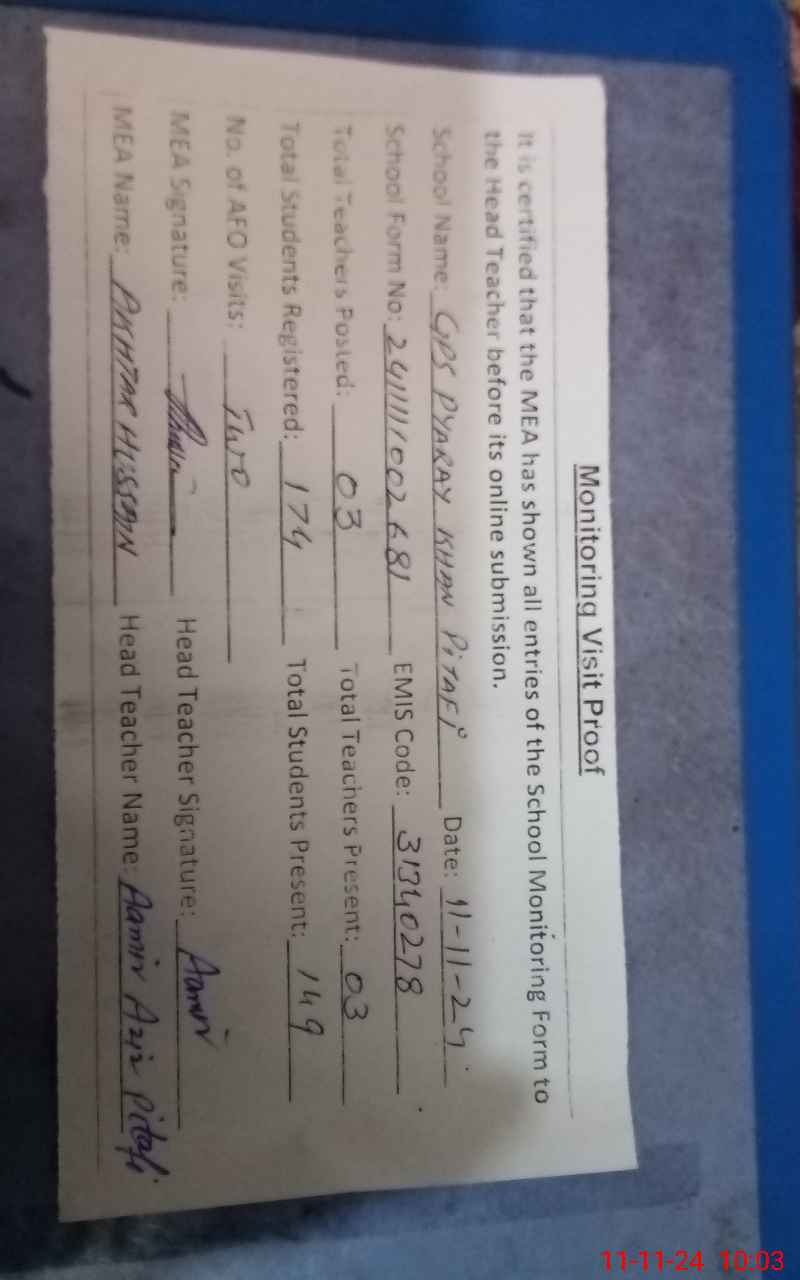 Monitoring Visit Proof
It is certified that the MEA has shown all entries of the School Monitoring Form to
the Head Teacher before its online submission.
School Name: GPS PYARAY KHAN PiTAFi Date: 11-11-24
School Form No: 2411111002681 EMIS Code: 31340278
Total Teachers Posted: 03 Total Teachers Present: 03
Total Students Registered: 174 Total Students Present: 149
No. of AFO Visits: Two
MEA Signature: Head Teacher Signature: Aamir
MEA Name: AKHTAR HUSSAIN Head Teacher Name: Aamir Aziz Pitafi
11-11-24 10:03